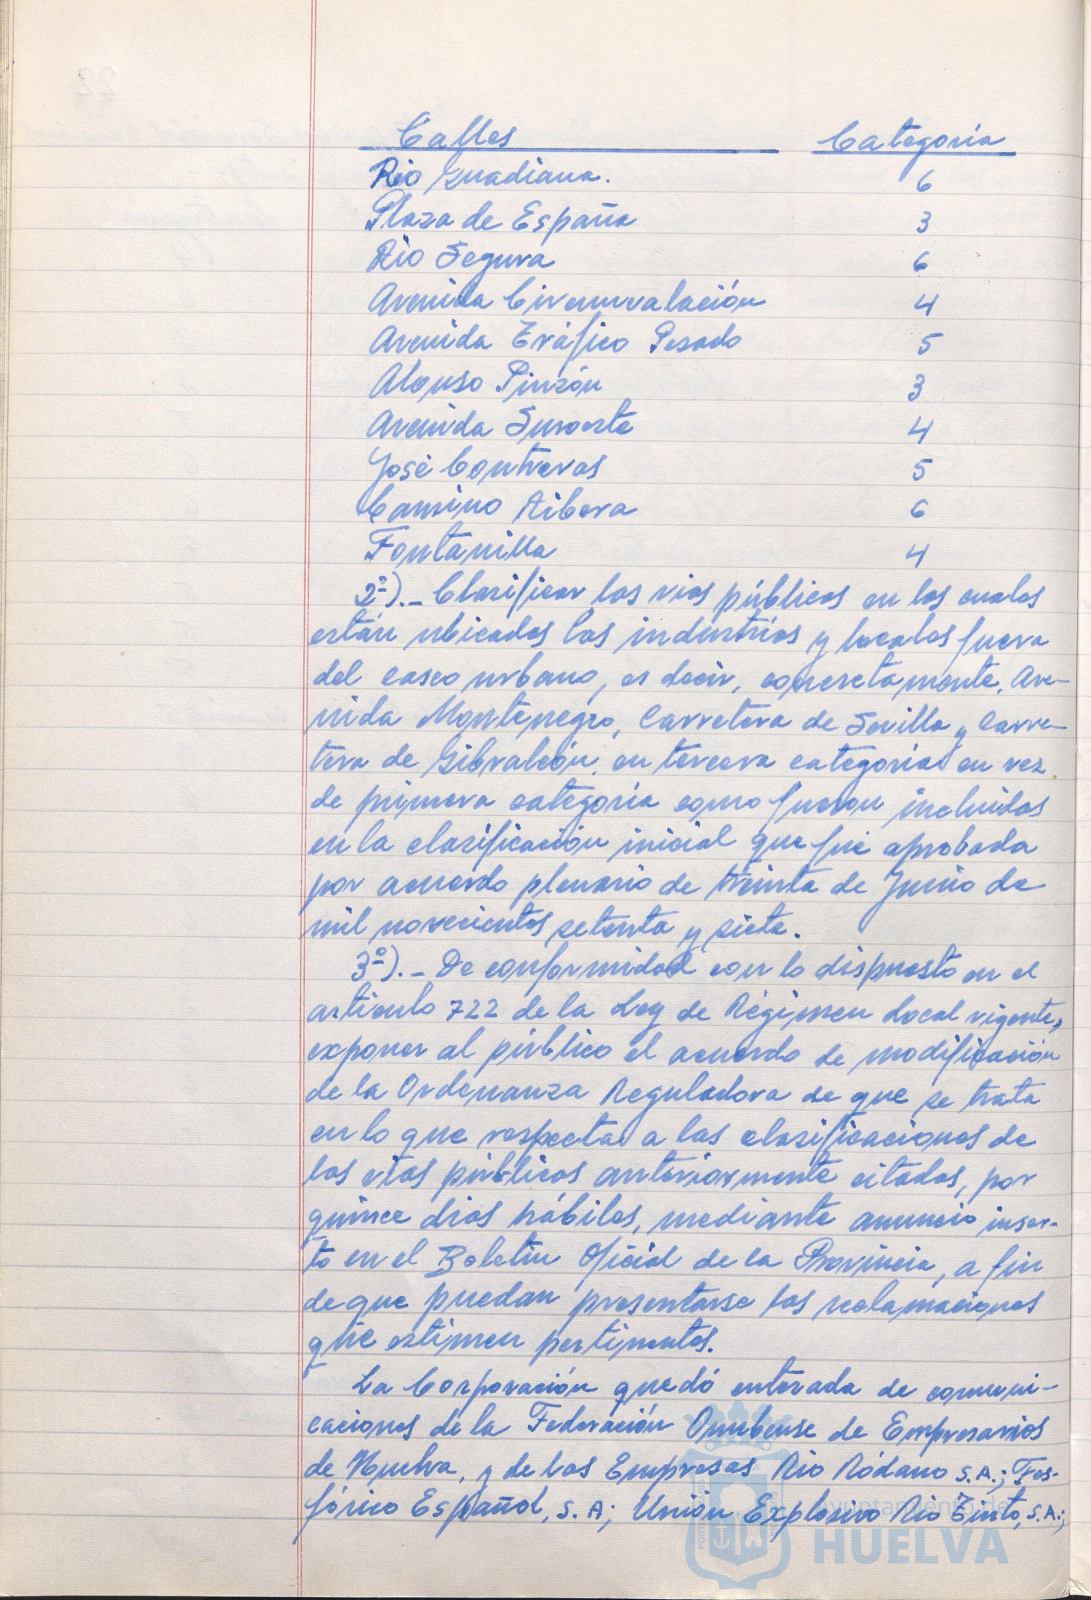 Calles Categoría
Rio Guadiana. 6
Plaza de España 3
Rio Segura 6
Avenida Circunvalación 4
Avenida Tráfico Pesado 5
Alonso Pinzón 3
Avenida Suroeste 4
José Contreras 5
Camino Ribera 6
Fontanilla 4
2º).- Clasificar las vias públicas en las cuales
están ubicadas las industrias y locales fuera
del casco urbano, es decir, concretamente, Ave-
nida Montenegro, Carretera de Sevilla y Carre-
tera de Gibraleón, en tercera categoría en vez
de primera categoría como fueron incluidas
en la clasificación inicial que fué aprobada
por acuerdo plenario de treinta de Junio de
mil novecientos setenta y siete.
3º).- De conformidad con lo dispuesto en el
artículo 722 de la Ley de Régimen Local vigente,
exponer al público el acuerdo de modificación
de la Ordenanza Reguladora de que se trata
en lo que respecta a las clasificaciones de
las vías públicas anteriormente citadas, por
quince días hábiles, mediante anuncio inser-
to en el Boletín Oficial de la Provincia, a fin
de que puedan presentarse las reclamaciones
que estimen pertinentes.
La Corporación quedó enterada de comuni-
caciones de la Federación Onubense de Empresarios
de Huelva, y de las Empresas Rio Ródano S.A.; Fos-
fórico Español, S.A; Unión Explosivo Rio Tinto, S.A.;
Ayuntamiento de
HUELVA